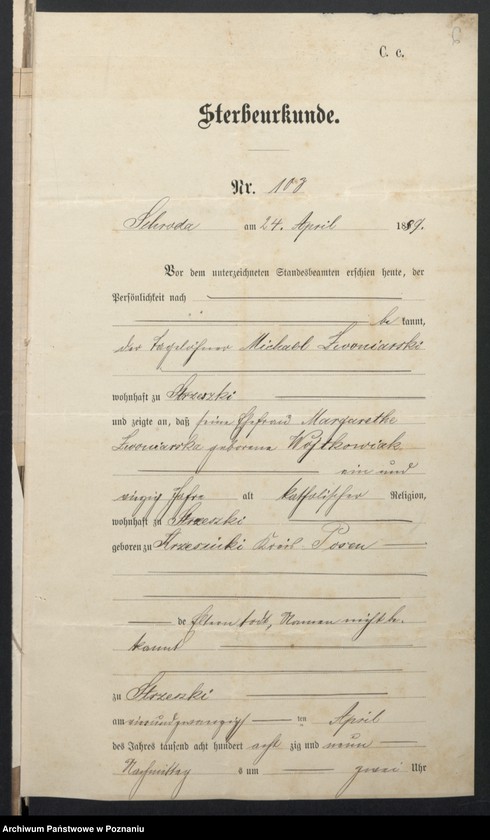 C. c.
Sterbeurkunde.
Nr. 108
Schroda am 24. April 1889.
Vor dem unterzeichneten Standesbeamten erschien heute, der
Persönlichkeit nach
be kannt,
der Tagelöhner Michael Zwoniarski
wohnhaft zu Strzeszki
und zeigte an, daß seine Ehefrau Margarethe
Zwoniarska geborene Wojtkowiak
ein und
vierzig Jahre alt katholischer Religion,
wohnhaft zu Strzeszki
geboren zu Kreis Posen
de Eltern todt, Namen nicht be-
kannt
zu Strzeszki
am ten April
des Jahres tausend acht hundert acht zig und neun
Nachmittag s um zwei Uhr
Archiwum Państwowe w Poznaniu